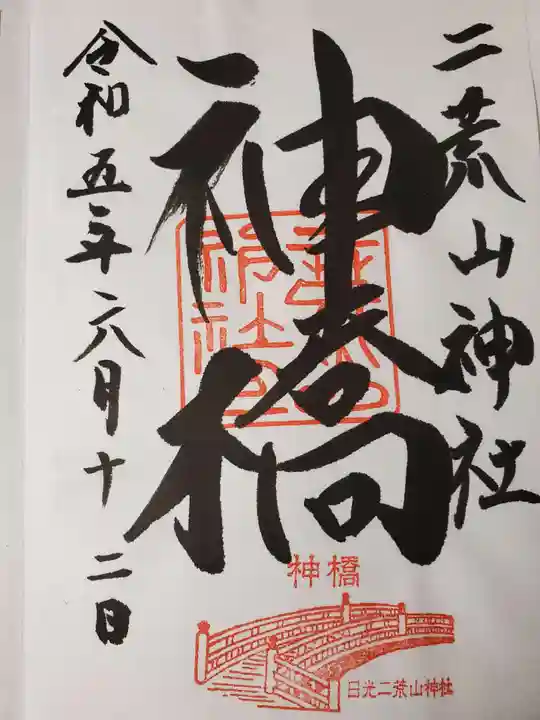 二荒山神社
神橋
令和五年六月十二日
神橋
日光二荒山神社